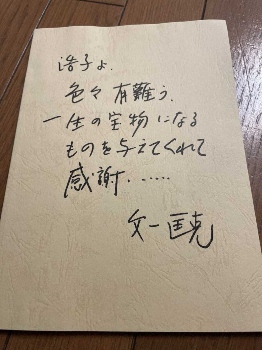 浩子よ.
色々 有難う.
一生の宝物になる
ものを与えてくれて
感謝.……
文一 匡克